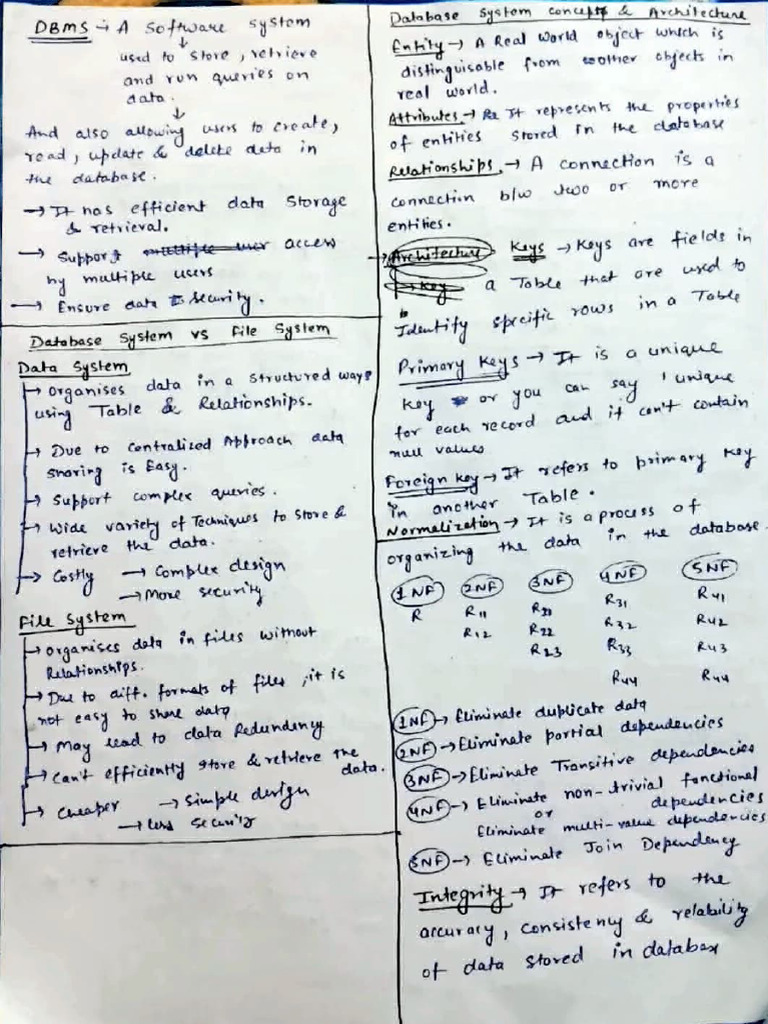 DBMS → A Software System
↓
used to store, retrieve
and run queries on
data.
↓
And also allowing users to create,
read, update & delete data in
the database.
→ It has efficient data Storage
& retrieval.
→ Support access
by multiple users
→ Ensure data Security.
Database System vs File System
Data System
→ Organises data in a Structured ways
using Table & Relationships.
→ Due to Centralized Approach data
sharing is Easy.
→ Support complex queries.
→ Wide variety of Techniques to Store &
retrieve the data.
→ Costly → Complex design
→ More security
File System
→ Organises data in files without
Relationships.
→ Due to diff. formats of files, it is
not easy to share data
→ May lead to data Redundency
→ Can't efficiently store & retrieve the
data.
→ Cheaper → Simple design
→ Less Security
Database System concepts & Architecture
Entity → A Real World object which is
distinguisable from other objects in
real world.
Attributes → It represents the properties
of entities stored in the database
Relationships → A connection is a
connection b/w two or more
entities.
→ Architecture Keys → Keys are fields in
→ Key a Table that are used to
Identify specific rows in a Table
Primary Keys → It is a unique
key or you can say unique
for each record and it can't contain
null values
Foreign key → It refers to primary key
in another Table.
Normalization → It is a process of
organizing the data in the database.
1NF 2NF 3NF 4NF 5NF
R R11 R21 R31 R41
R12 R22 R32 R42
R23 R33 R43
R44 R44
1NF → Eliminate duplicate data
2NF → Eliminate partial dependencies
3NF → Eliminate Transitive dependencies
4NF → Eliminate non-trivial functional
or dependencies
Eliminate multi-value dependencies
5NF → Eliminate Join Dependency
Integrity → It refers to the
accuracy, consistency & relability
of data stored in database